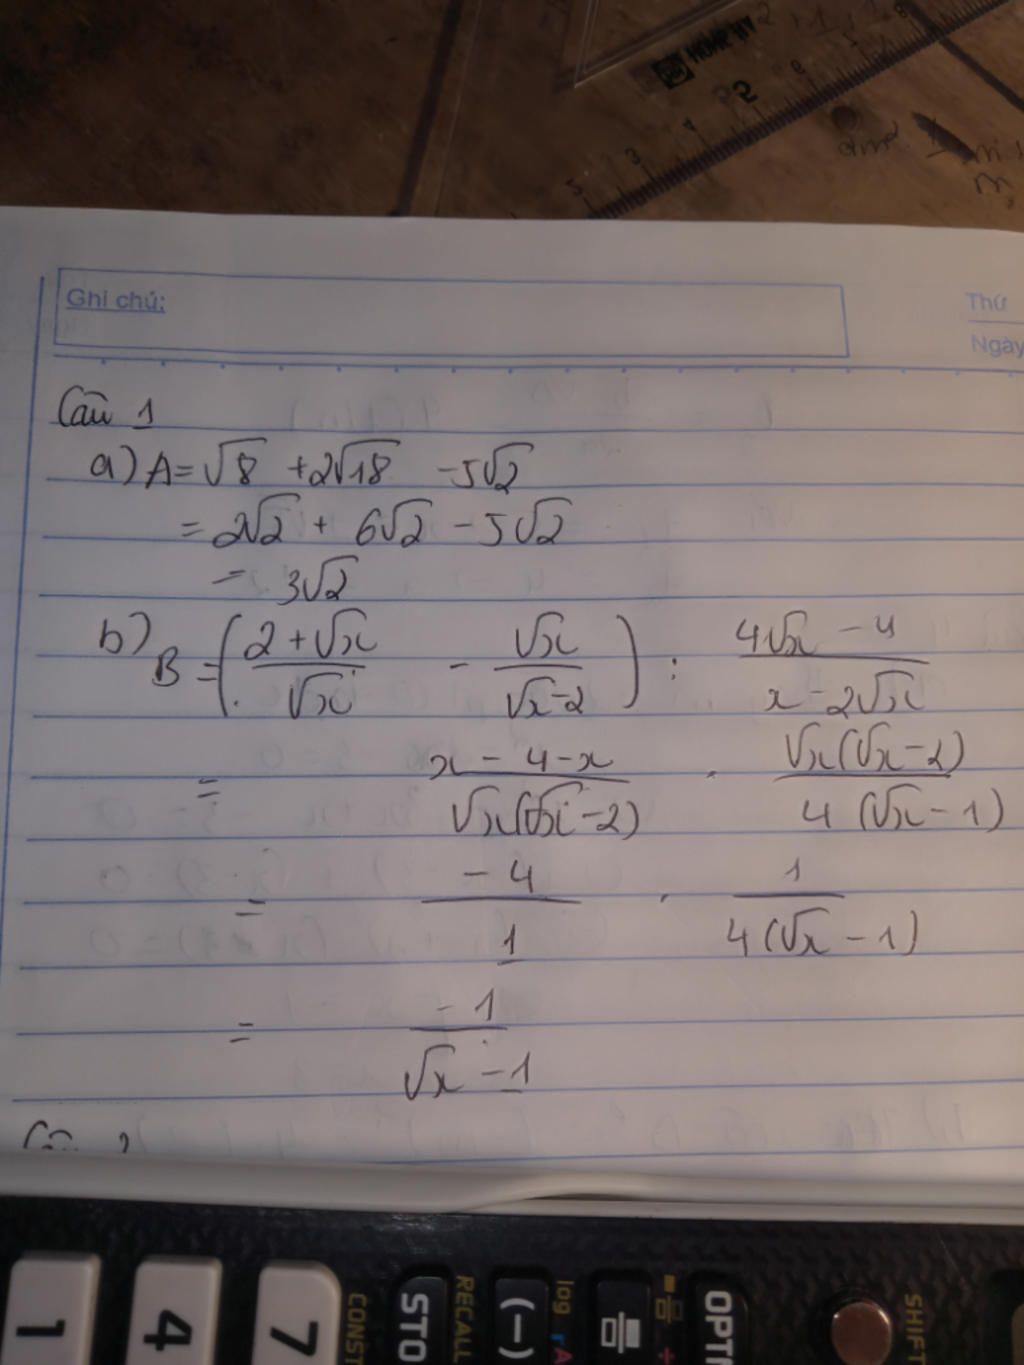 Ghi chú:
Thứ
Ngày
Câu 1
a) A = √8 + 2√18 - 5√2
= 2√2 + 6√2 - 5√2
= 3√2
b) B = ((2 + √x)/√x - √x/(√x - 2)) : (4√x - 4)/(x - 2√x)
= (x - 4 - x)/(√x(√x - 2)) . (√x(√x - 2))/(4(√x - 1))
= -4/1 . 1/(4(√x - 1))
= -1/(√x - 1)
1
4
7
CONST
STO
RECALL
(−)
log
OPTN
SHIFT